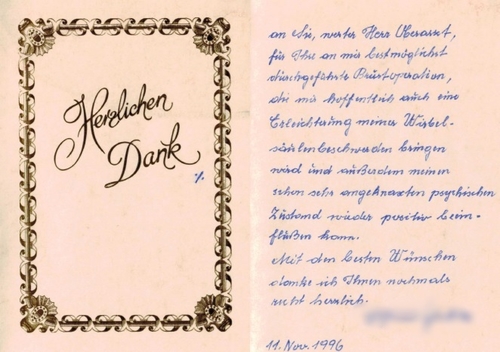 Herzlichen
Dank
an Sie, werter Herr Oberarzt,
für Ihre an mir bestmöglichst
durchgeführte Brustoperation,
die mir hoffentlich auch eine
Erleichterung meiner Wirbel-
säulenbeschwerden bringen
wird und außerdem meinen
schon sehr angeknaxten psychischen
Zustand wieder positiv beein-
flußen kann.
Mit den besten Wünschen
danke ich Ihnen nochmals
recht herzlich.
11. Nov. 1996